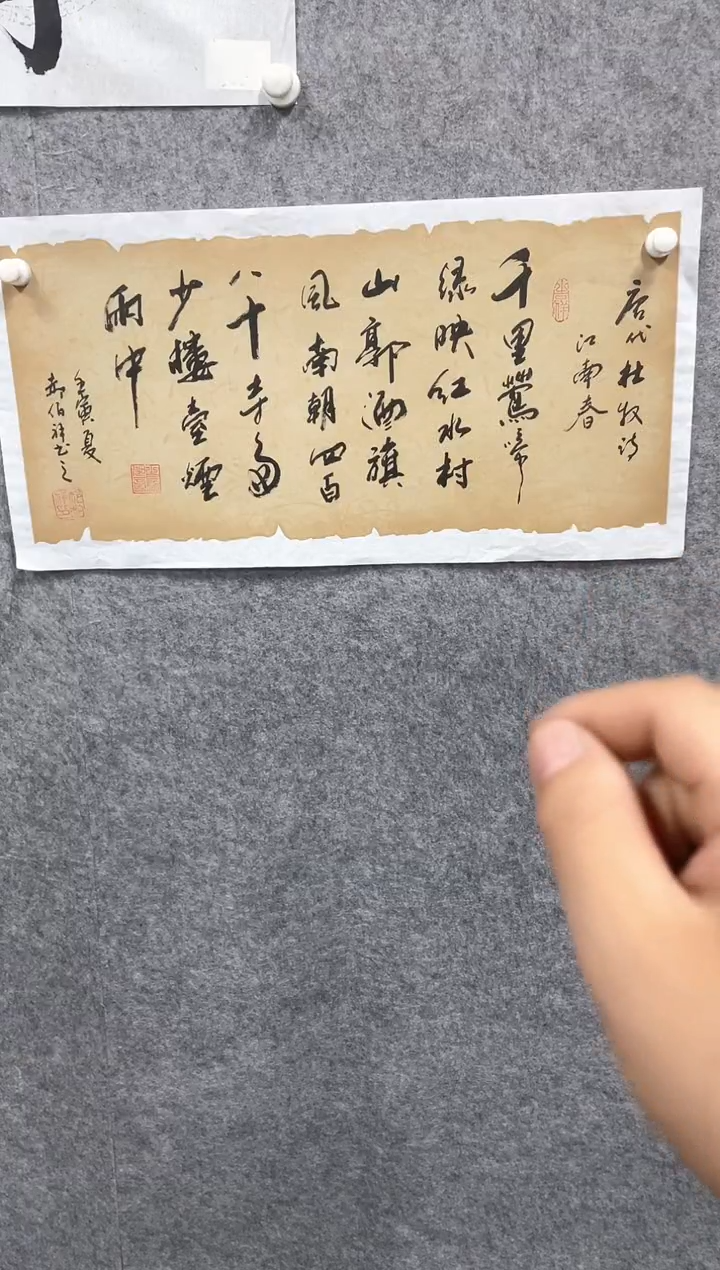 唐代杜牧诗
江南春
千里鶯啼
绿映红水村
山郭酒旗
風南朝四百
八十寺多
少樓臺煙
雨中
壬寅夏
郝伯祥书之